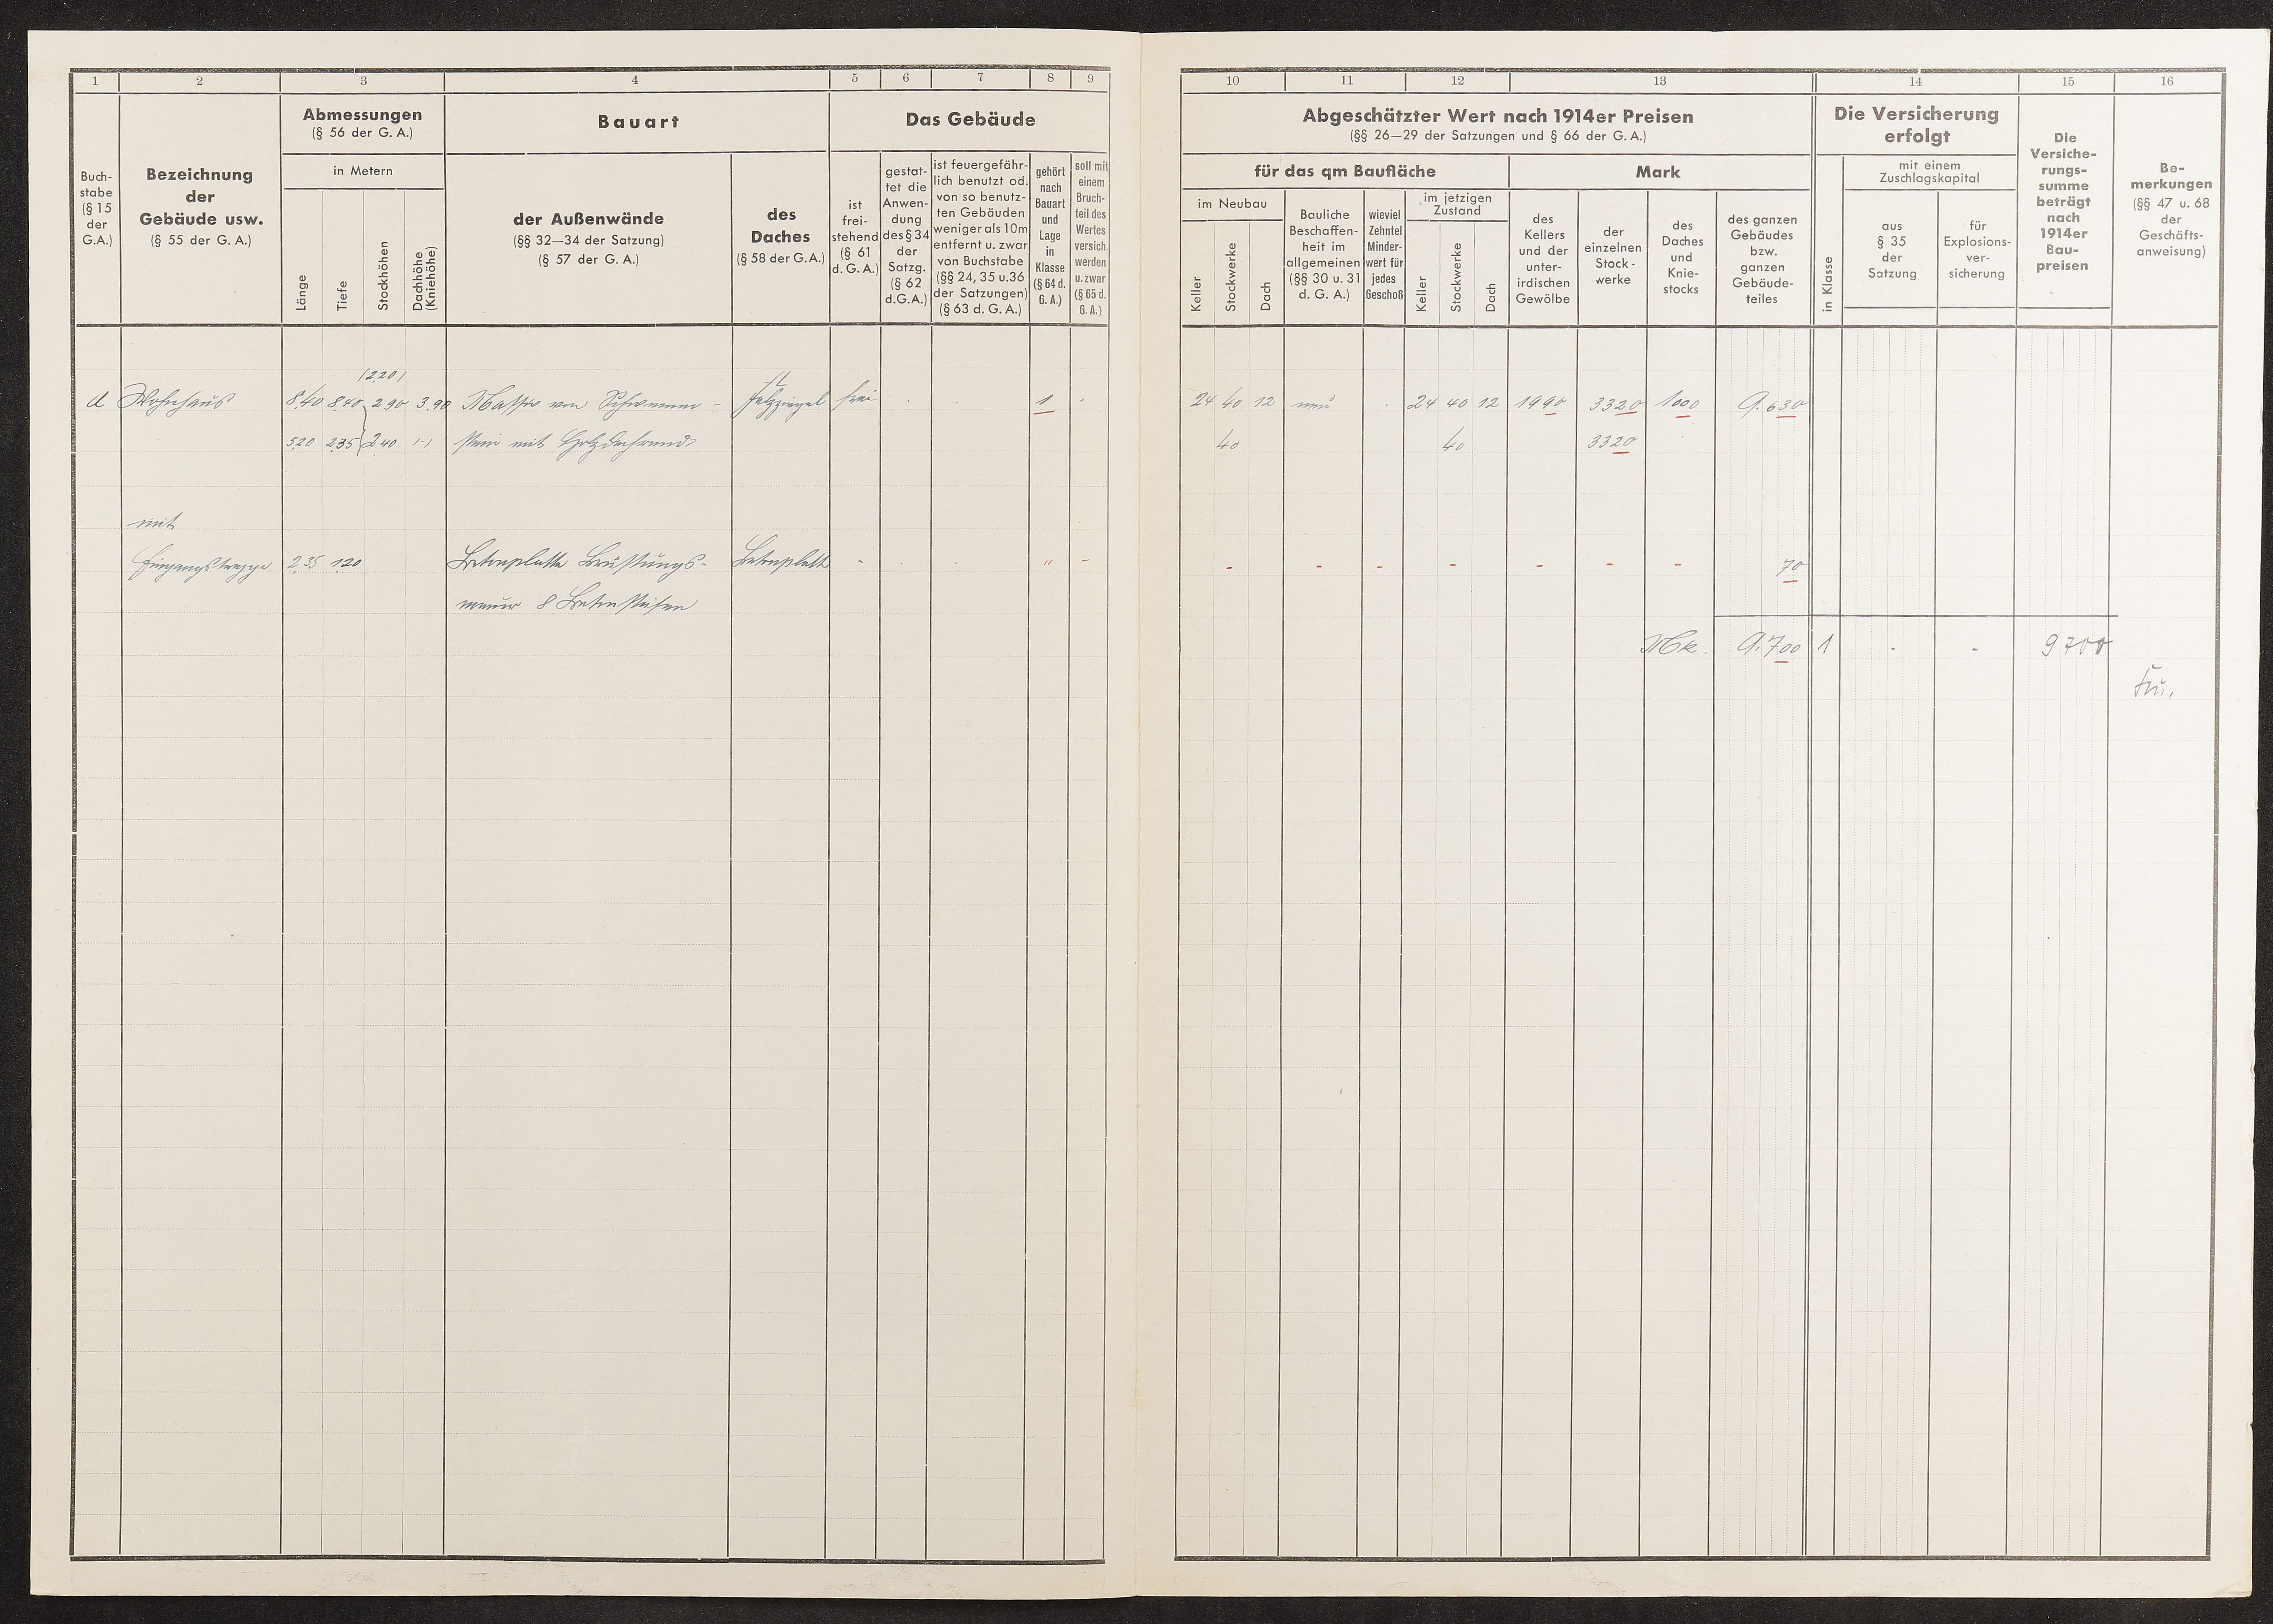 1 2 3 4 5 6 7 8 9
Buch-
stabe
(§ 15
der
G.A.)
Bezeichnung
der
Gebäude usw.
(§ 55 der G. A.)
Abmessungen
(§ 56 der G. A.)
in Metern
Länge
Tiefe
Stockhöhen
Dachhöhe
(Kniehöhe)
Bauart
der Außenwände
(§§ 32—34 der Satzung)
(§ 57 der G. A.)
des
Daches
(§ 58 der G. A.)
Das Gebäude
ist
frei-
stehend
(§ 61
d. G. A.)
gestat-
tet die
Anwen-
dung
des § 34
der
Satzg.
(§ 62
d.G.A.)
ist feuergefähr-
lich benutzt od.
von so benutz-
ten Gebäuden
weniger als 10m
entfernt u. zwar
von Buchstabe
(§§ 24, 35 u.36
der Satzungen)
(§ 63 d. G. A.)
gehört
nach
Bauart
und
Lage
in
Klasse
(§ 64 d.
G. A.)
soll mit
einem
Bruch-
teil des
Wertes
versich.
werden
u. zwar
(§ 65 d.
G. A.)
(2.20)
d Wohnhaus 8.40 8.40 2.90 3.90 Massiv von Schwemm- Falzziegel frei - - 1 -
5.20 2.35 2.40 (-) stein mit Holzfachwand
mit
Eingangstreppe 2.35 1.20 Betonplatte Brüstungs- Betonplatte - - - " -
mauer 8 Betonstufen
10 11 12 13 14 15 16
Abgeschätzter Wert nach 1914er Preisen
(§§ 26—29 der Satzungen und § 66 der G. A.)
für das qm Baufläche
Mark
im Neubau
Keller
Stockwerke
Dach
Bauliche
Beschaffen-
heit im
allgemeinen
(§§ 30 u. 31
d. G. A.)
wieviel
Zehntel
Minder-
wert für
jedes
Geschoß
im jetzigen
Zustand
Keller
Stockwerke
Dach
des
Kellers
und der
unter-
irdischen
Gewölbe
der
einzelnen
Stock-
werke
des
Daches
und
Knie-
stocks
des ganzen
Gebäudes
bzw.
ganzen
Gebäude-
teiles
Die Versicherung
erfolgt
in Klasse
mit einem
Zuschlagskapital
aus
§ 35
der
Satzung
für
Explosions-
ver-
sicherung
Die
Versiche-
rungs-
summe
beträgt
nach
1914er
Bau-
preisen
Be-
merkungen
(§§ 47 u. 68
der
Geschäfts-
anweisung)
24 40 12 neu - 24 40 12 1990 3320 1000 9.630
40 40 3320
- - - - - - - 70
Mk. 9.700 1 - - 9700